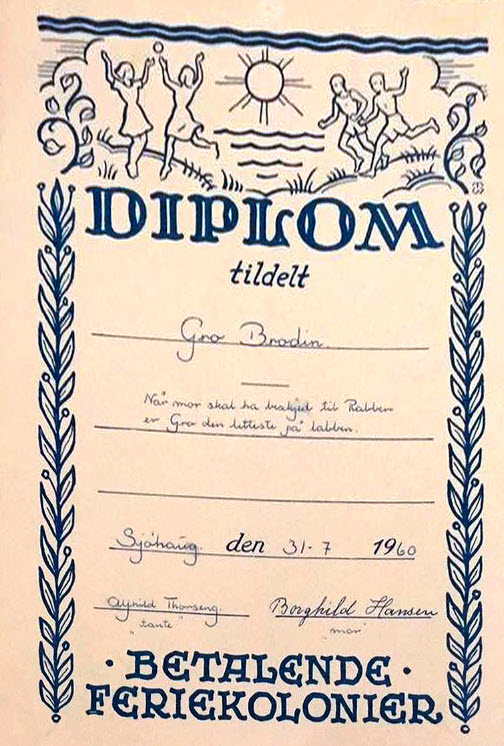 DIPLOM
tildelt
Gro Brodin.
Når mor skal ha beskjed til Rabben
er Gro den letteste på labben.
Sjøhaug. den 31-7 1960
Thorseng. Borghild Hansen
"tante" "mor"
· BETALENDE ·
FERIEKOLONIER